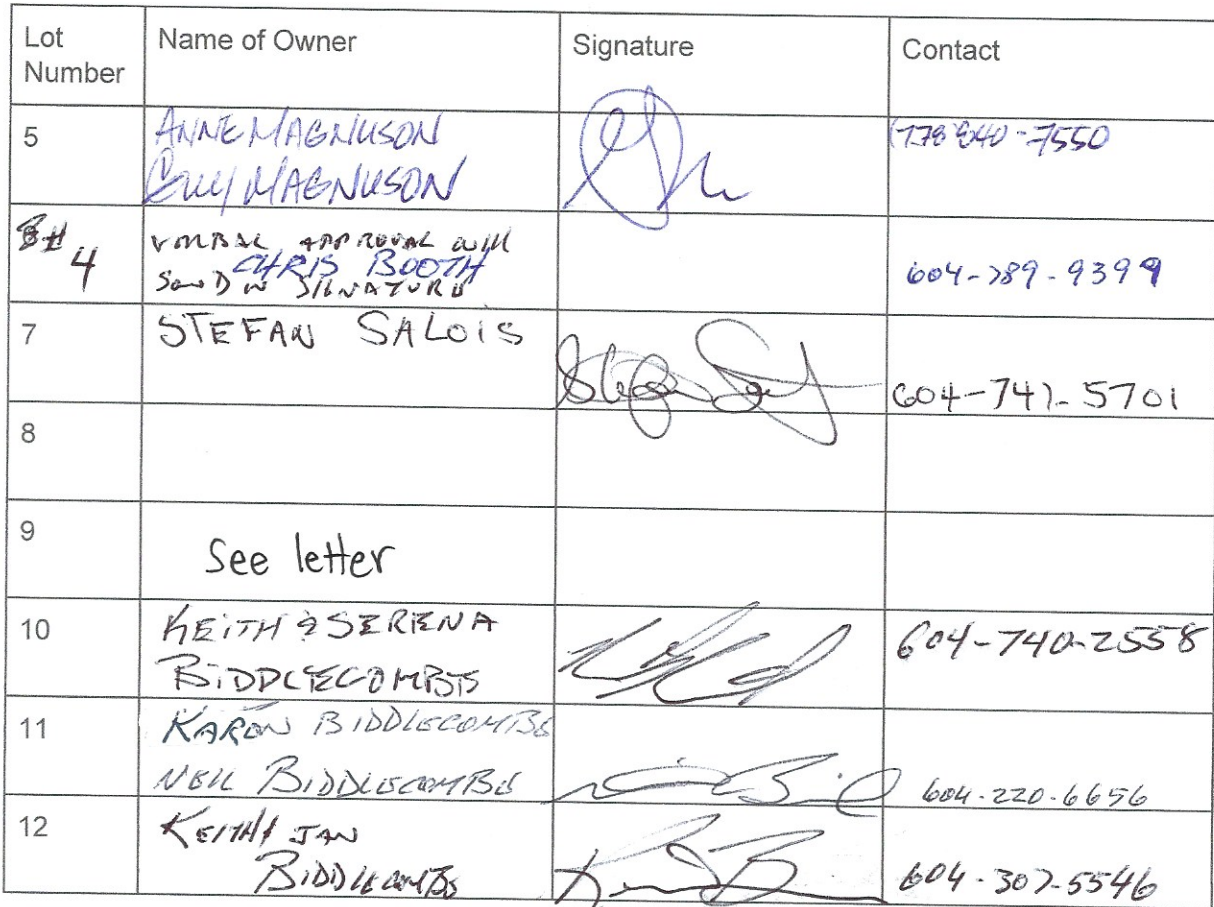 Lot Number
Name of Owner
Signature
Contact
5
ANNE MAGNUSON
MAGNUSON
778 840-7550
4
VERBAL APPROVAL WILL
CHRIS BOOTH
SEND IN SIGNATURE
604-789-9399
7
STEFAN SALOIS
604-741-5701
8
9
See letter
10
KEITH & SERENA
BIDDLECOMBE
604-740-2558
11
KAREN BIDDLECOMBE
NEIL BIDDLECOMBE
604-220-6656
12
KEITH & JAN
BIDDLECOMBE
604-307-5546